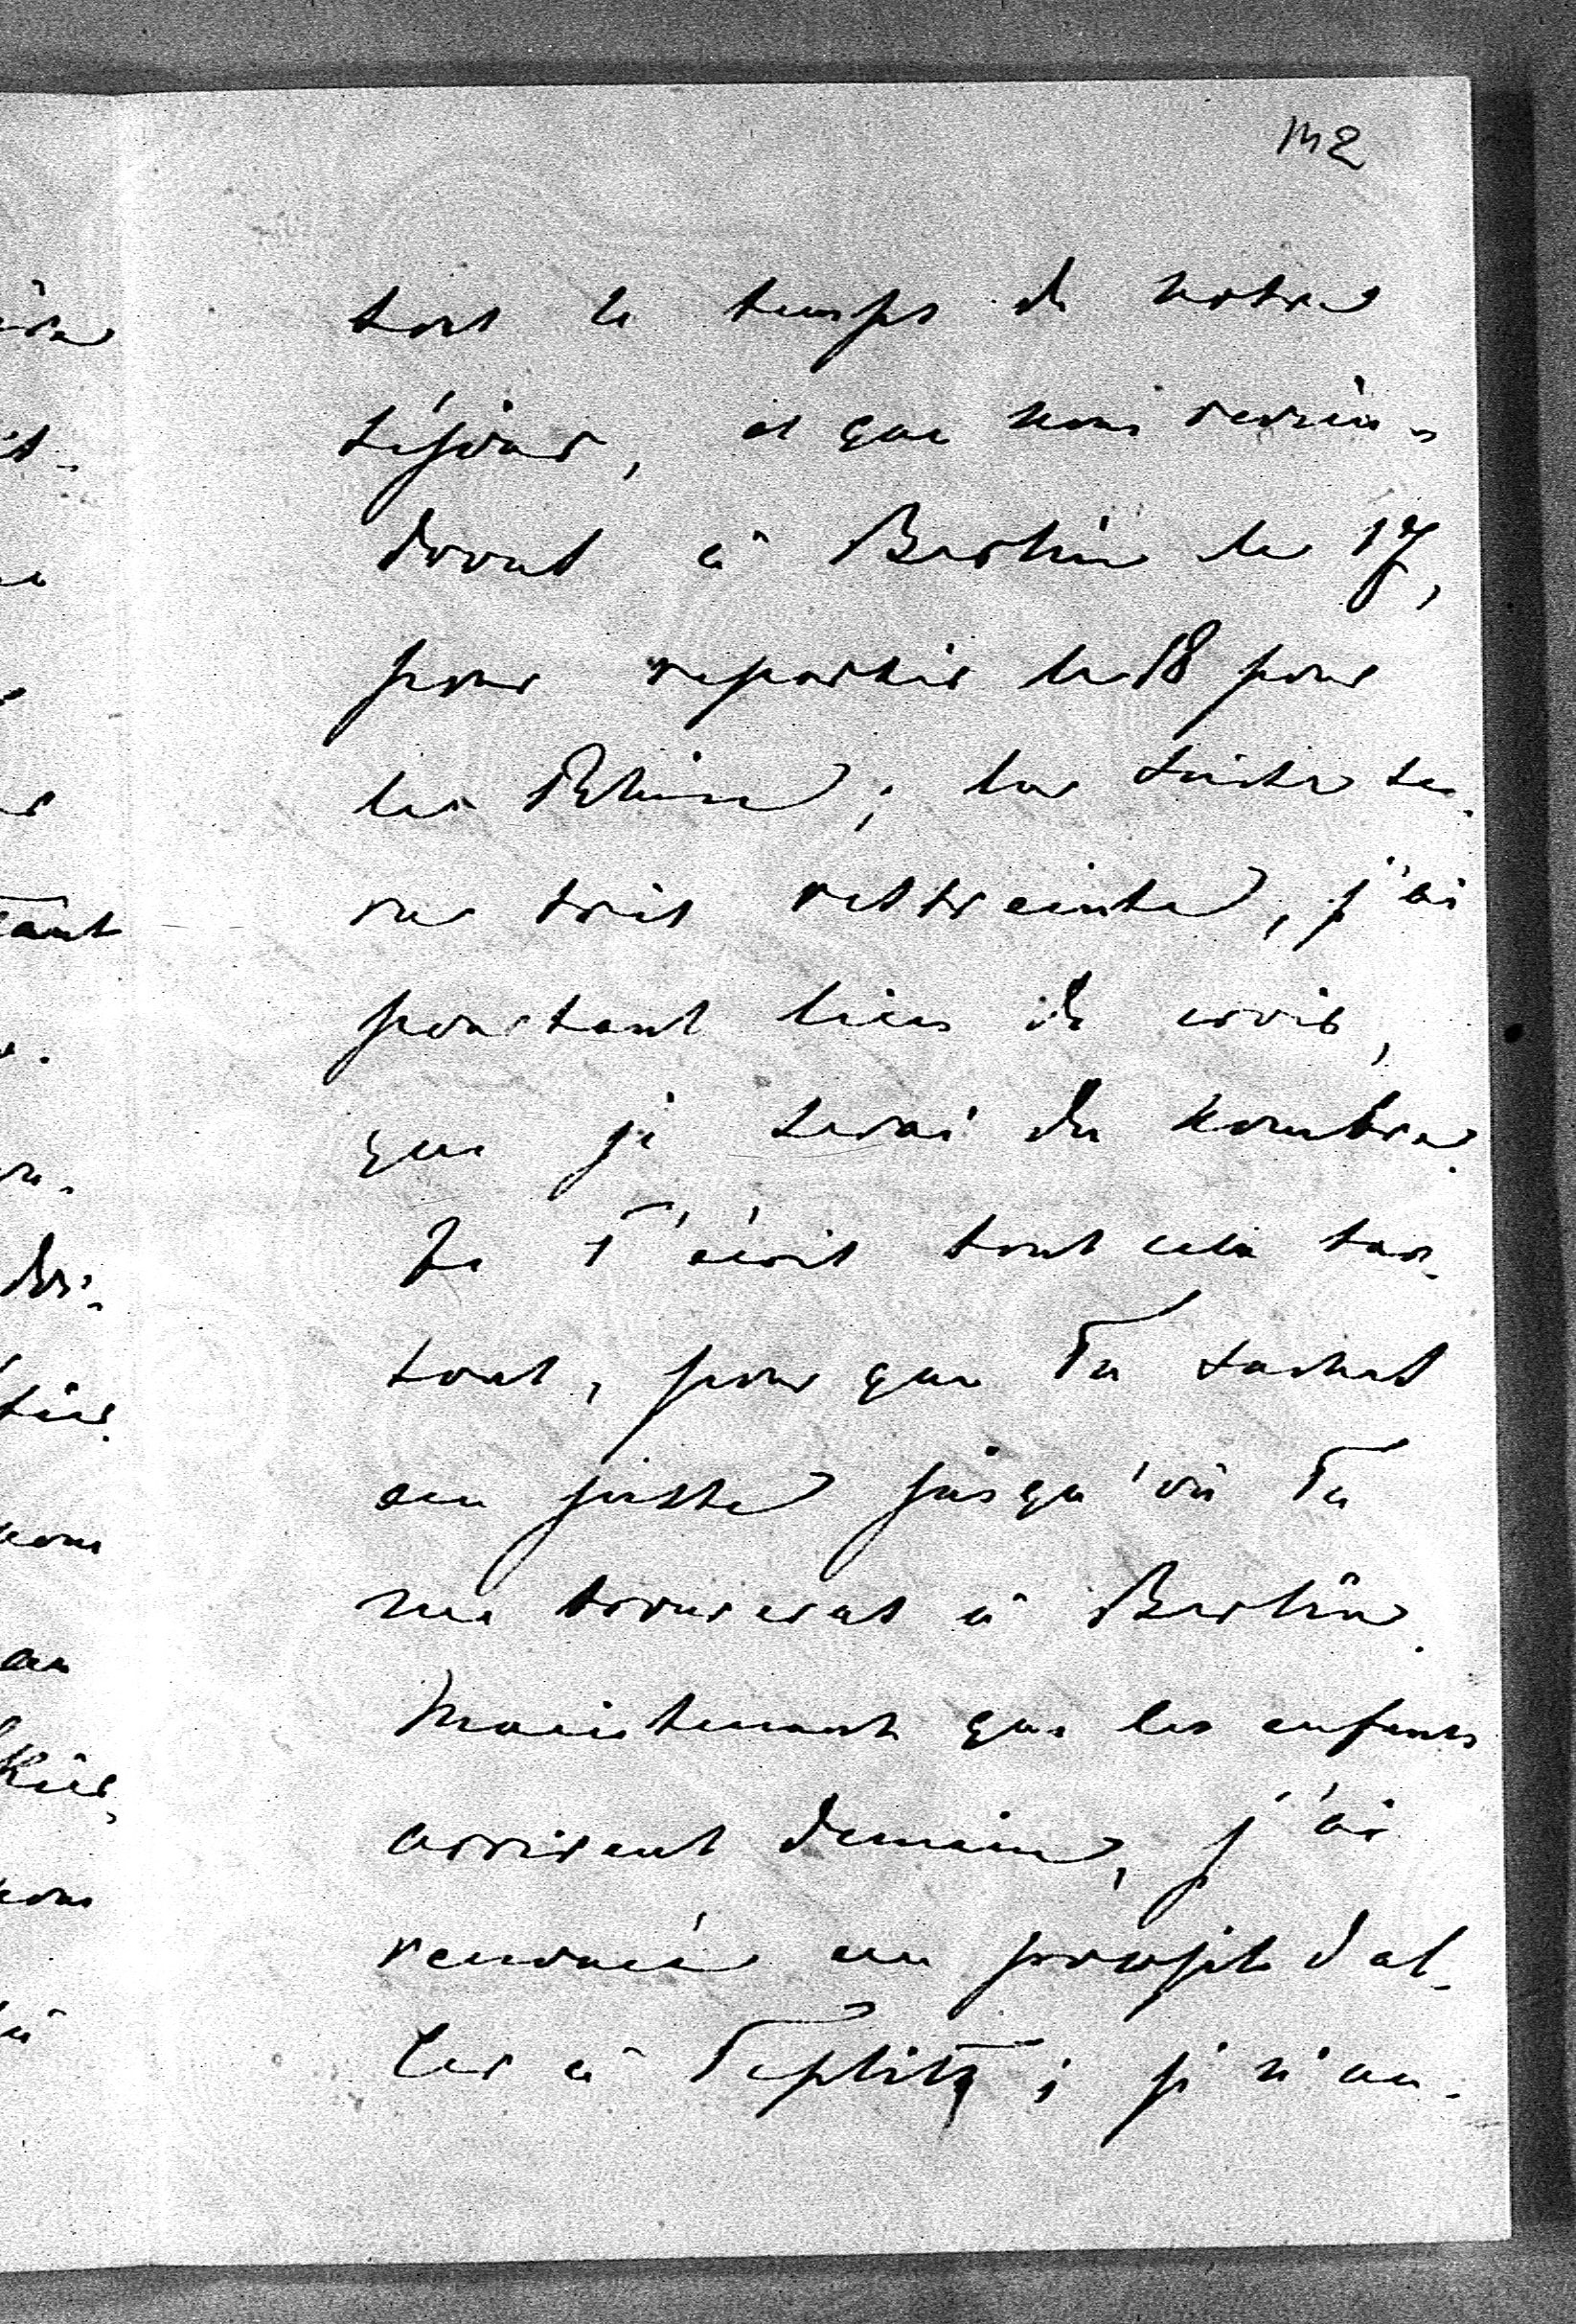 112
tout le temps de notre
séjour, et que nous revien-
dront à Berlin le 17,
pour repartir le 18 pour
le Rhin; la suite se-
ra très restreinte, j'ai
pourtant lieu de croir,
que je serai du nombre.
Je T'écris tout cela sur-
tout, pour que Tu saches
au juste jusqu'où Tu
me trouveras à Berlin.
Maintenant que les enfants
arrivent demain, j'ai
renoncé au projet d'al-
ler à Teplitz; je n'au-